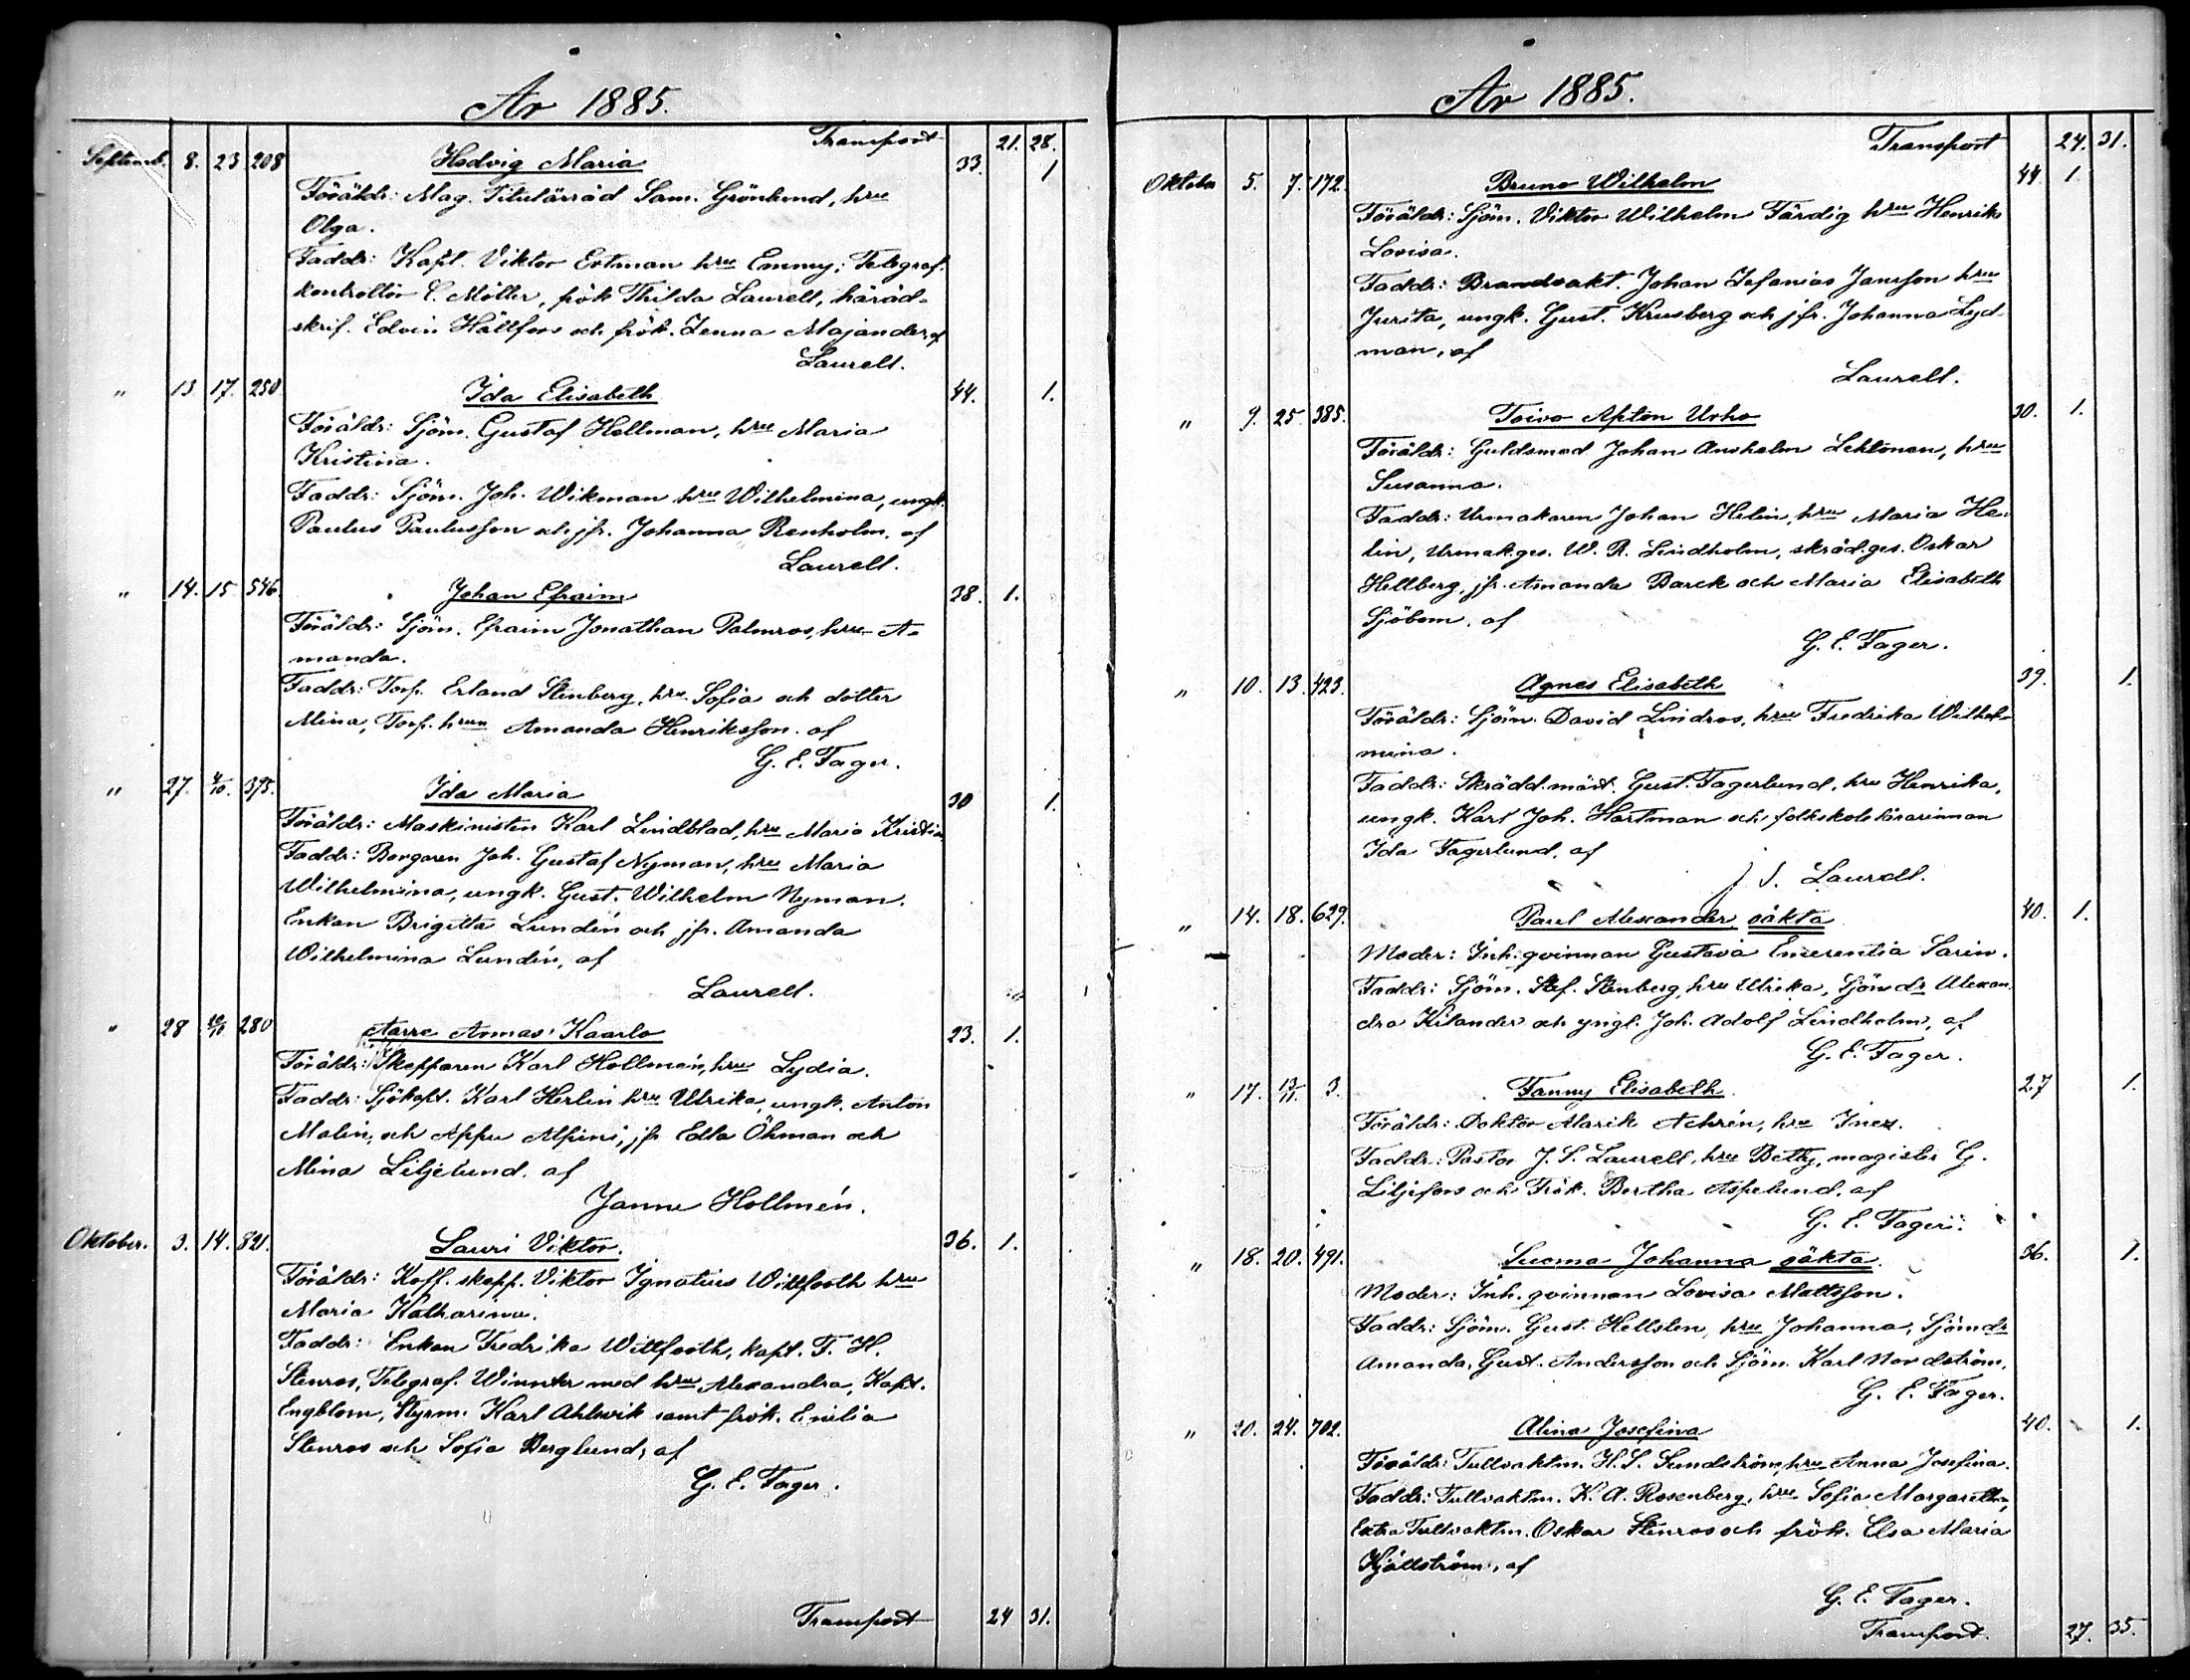 År 1885.
Transport 21. 28.
Septemb. 8. 23 208 Hedvig Maria 33. 1
Föräldr: Mag. Titulärråd Sam. Grönlund, hru
Olga.
Faddr: Kapt. Viktor Ertman hru Emmy; Telegraf.
kontrollör C. Möller, frök Thilda Laurell, häråd-
skrif. Edvin Hällfors och frök. Jenna Majander, af
Laurell.
" 13 17. 250. Ida Elisabeth 44. 1.
Föräldr: Sjöm. Gustaf Hellman, hru Maria
Kristina.
Faddr: Sjöm. Joh. Wikman hru Wilhelmina, ungk.
Paulus Paulusson och jfr. Johanna Renholm. af
Laurell.
" 14. 15 546. Johan Efraim 28. 1.
Föräldr: Sjöm. Efraim Jonathan Palmros, hru A-
manda.
Faddr: Torp. Erland Stenberg, hru Sofia och dotter
Mina, Torp. hrun Amanda Henriksson. af
G. E. Fager.
" 27. 4/10. 375. Ida Maria 30 1.
Föräldr: Maskinisten Karl Lindblad, hru Maria Kristin.
Faddr: Borgaren Joh. Gustaf Nyman, hru Maria
Wilhelmina, ungk. Gust. Wilhelm Nyman.
Enkan Brigitta Lundén och jfr. Amanda
Wilhelmina Lundén, af
Laurell.
" 28 280 Aarre Armas Kaarlo 23. 1.
Föräldr: Skepparen Karl Hollmén, hru Lydia.
Faddr: Sjökapt. Karl Herlin hru Ulrika, ungk. Anton
Malin, och Appu Alpini, jfr Edla Öhman och
Mina Liljelund. af
Janne Hollmén.
Oktober. 3. 14. 821. Lauri Viktor. 36. 1.
Föräldr: Koff. skepp. Viktor Ignatius Wittfooth hru
Maria Katharina.
Faddr: Enkan Fredrika Wittfooth, kapt. F. H.
Stenros, Telegraf. Winnter med hru Alexandra, Kapt.
Engblom, Styrm. Karl Ahlsvik samt frök. Emilia
Stenros och Sofia Berglund, af
G. E. Fager.
Transport 24 31.
År 1885.
Transport 24. 31.
Oktober 5. 7. 172. Bruno Wilhelm 44 1.
Föräldr: Sjöm. Viktor Wilhelm Färdig hru Henrika
Lovisa.
Faddr: Brandvakt. Johan Zefanias Jansson hru
Jurita, ungk. Gust. Krusberg och jfr. Johanna Lyd-
man, af
Laurell.
" 9. 25. 385. Toivo Apton Urho 30. 1.
Föräldr: Guldsmed Johan Anshelm Lehtonen, hru
Susanna.
Faddr: Urmakaren Johan Helin, hru Maria He-
lin, Urmak.ges. W. R. Lindholm, skräd.ges. Oskar
Hellberg, jfr. Amanda Barck och Maria Elisabeth
Sjöbom. af
G. E. Fager.
" 10. 13. 423. Agnes Elisabeth 39. 1.
Föräldr: Sjöm. David Lindros, hru Fredrika Wilhel-
mina.
Faddr: Skrädd.mäst. Gust. Fagerlund, hru Henrika,
ungk. Karl Joh. Hartman och folkskolelärarinnan
Ida Fagerlund, af
J. S. Laurell.
" 14. 18. 629. Paul Alexander, oäkta 40. 1.
Moder: Inh. qvinnan Gustava Emerentia Sarin.
Faddr: Sjöm. Stef. Stenberg, hru Ulrika, Sjömdr Alexan-
dra Kilander och yngl. Joh. Adolf Lindholm, af
G. E. Fager.
" 17. 13/11. 3. Fanny Elisabeth 27 1.
Föräldr: Doktor Alarik Achrén, hru Inez.
Faddr: Pastor J. S. Laurell, hru Betty, magister G.
Liljefors och Frök. Bertha Aspelund, af
G. E. Fager.
" 18. 20. 491. Suoma Johanna oäkta. 36. 1.
Moder: Inh. qvinnan Lovisa Mattsson.
Faddr: Sjöm. Gust. Hellsten, hru Johanna, Sjömdr
Amanda, Gust. Andersson och Sjöm. Karl Nordström,
G. E. Fager.
" 20. 24. 702. Alina Josefina 40. 1.
Föräldr: Tullvaktm. H. S. Sundström, hru Anna Josefina.
Faddr: Tullvaktm. K. A. Rosenberg, hru Sofia Margaretha,
Extra Tullvaktm. Oskar Stenros och frök. Elsa Maria
Kjällström, af
G. E. Fager.
Transport. 27. 35.